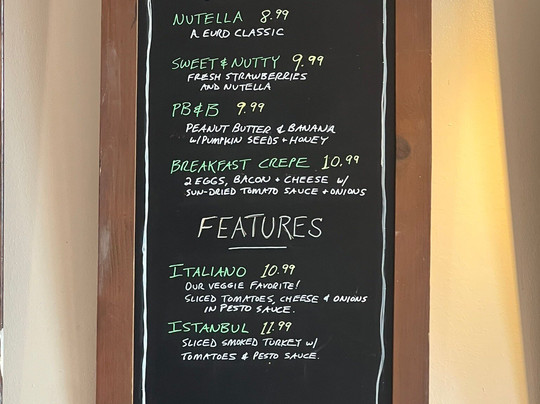 NUTELLA 8.99
A EURO CLASSIC
SWEET & NUTTY 9.99
FRESH STRAWBERRIES
AND NUTELLA
PB&B 9.99
PEANUT BUTTER & BANANA
W/ PUMPKIN SEEDS + HONEY
BREAKFAST CREPE 10.99
2 EGGS, BACON + CHEESE W/
SUN-DRIED TOMATO SAUCE + ONIONS
FEATURES
ITALIANO 10.99
OUR VEGGIE FAVORITE!
SLICED TOMATOES, CHEESE & ONIONS
IN PESTO SAUCE.
ISTANBUL 11.99
SLICED SMOKED TURKEY W/
TOMATOES & PESTO SAUCE.